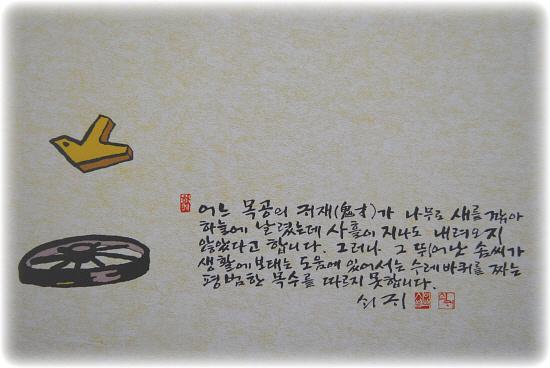 어느 목공의 귀재(鬼才)가 나무로 새를 깎아
하늘에 날렸는데 사흘이 지나도 내려오지
않았다고 합니다. 그러나 그 뛰어난 솜씨가
생활에 보태는 도움에 있어서는 수레바퀴를 짜는
평범한 목수를 따르지 못합니다.
쇠귀